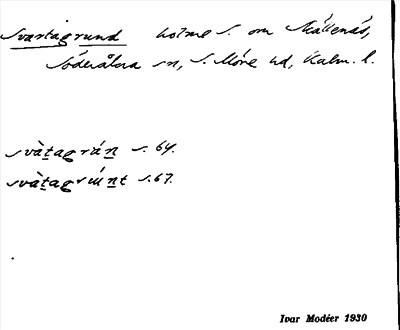 Svartagrund holme S. om Skällenäs,
Söderåkra sn, S. Möre hd, Kalm. l.
svàtagrún s. 64.
svàtagrúnt s. 67.
Ivar Modéer 1930